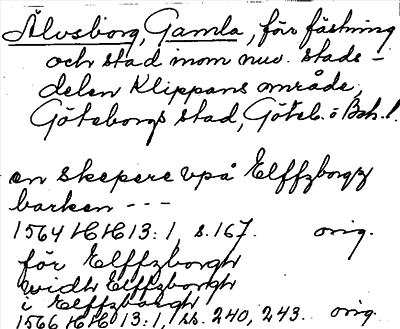 Älvsborg, Gamla, förr fästning
och stad inom nuv. stads-
delen Klippans område,
Göteborgs stad, Göteb. o Boh. l.
en skepere vpå Elffzborgz
barken ---
1564 HH 13:1, s. 167. orig.
för Elffzborgh
widh Elffzborgh
i Elffzborgh
1566 HH 13:1, ss. 240, 243. orig.